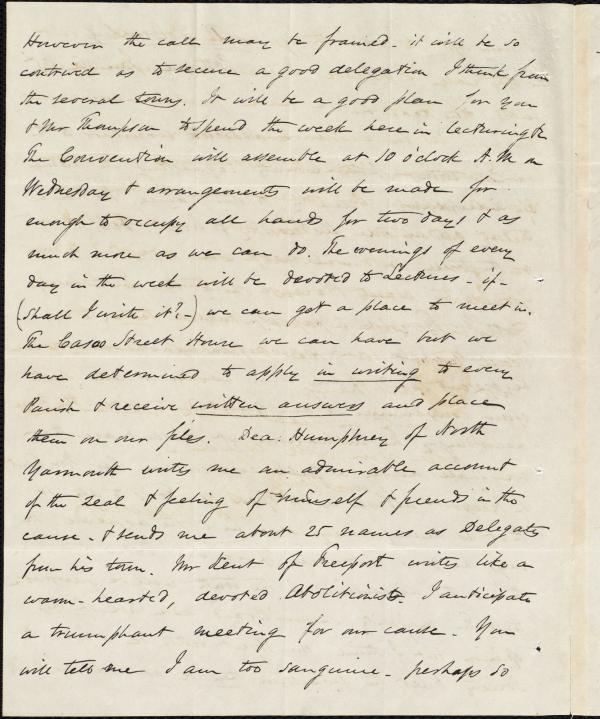 However the call may be framed - it will be so
contrived as to secure a good delegation I think from
the several towns. It will be a good plan for you
& Mr Thompson to spend the week here in lecturing &c
The Convention will assemble at 10 o'clock A.M. on
Wednesday & arrangements will be made for
enough to occupy all hands for two days & as
much more as we can do. The evenings of every
day in the week will be devoted to Lectures - if -
(shall I write it? -) we can get a place to meet in.
The Casco Street House we can have but we
have determined to apply in writing to every
Parish & receive written answers and place
them on our files. Dea. Humphrey of North
Yarmouth writes me an admirable account
of the zeal & feeling of himself & friends in the
cause - & sends me about 25 names as Delegates
from his town. Mr Kent of Freeport writes like a
warm-hearted, devoted Abolitionist. I anticipate
a triumphant meeting for our cause. You
will tell me I am too sanguine - perhaps so